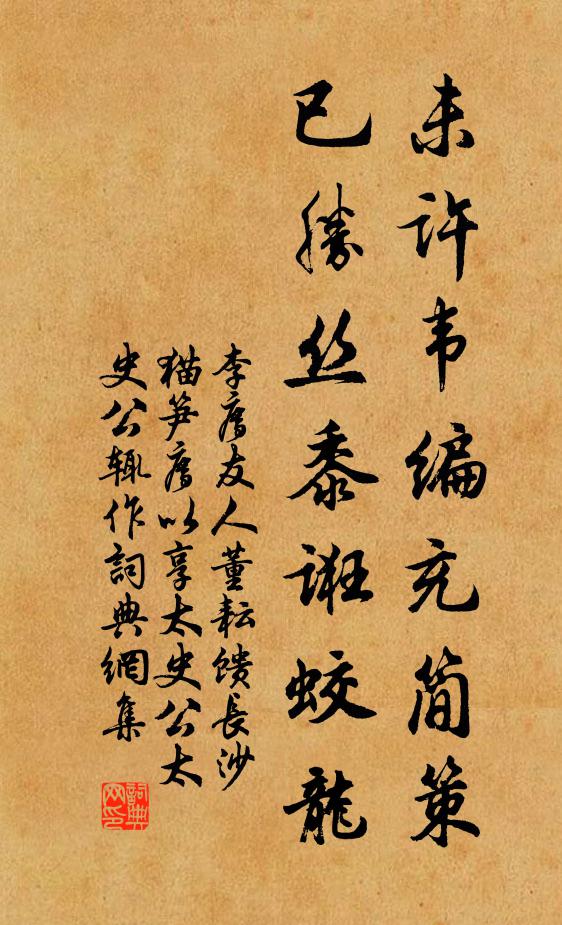 未许韦编充简策
已胜丝黍诳蛟龙
李廌友人董耘馈长沙
猫笋廌以享太史公太
史公辄作詞典網集
詞典
网印